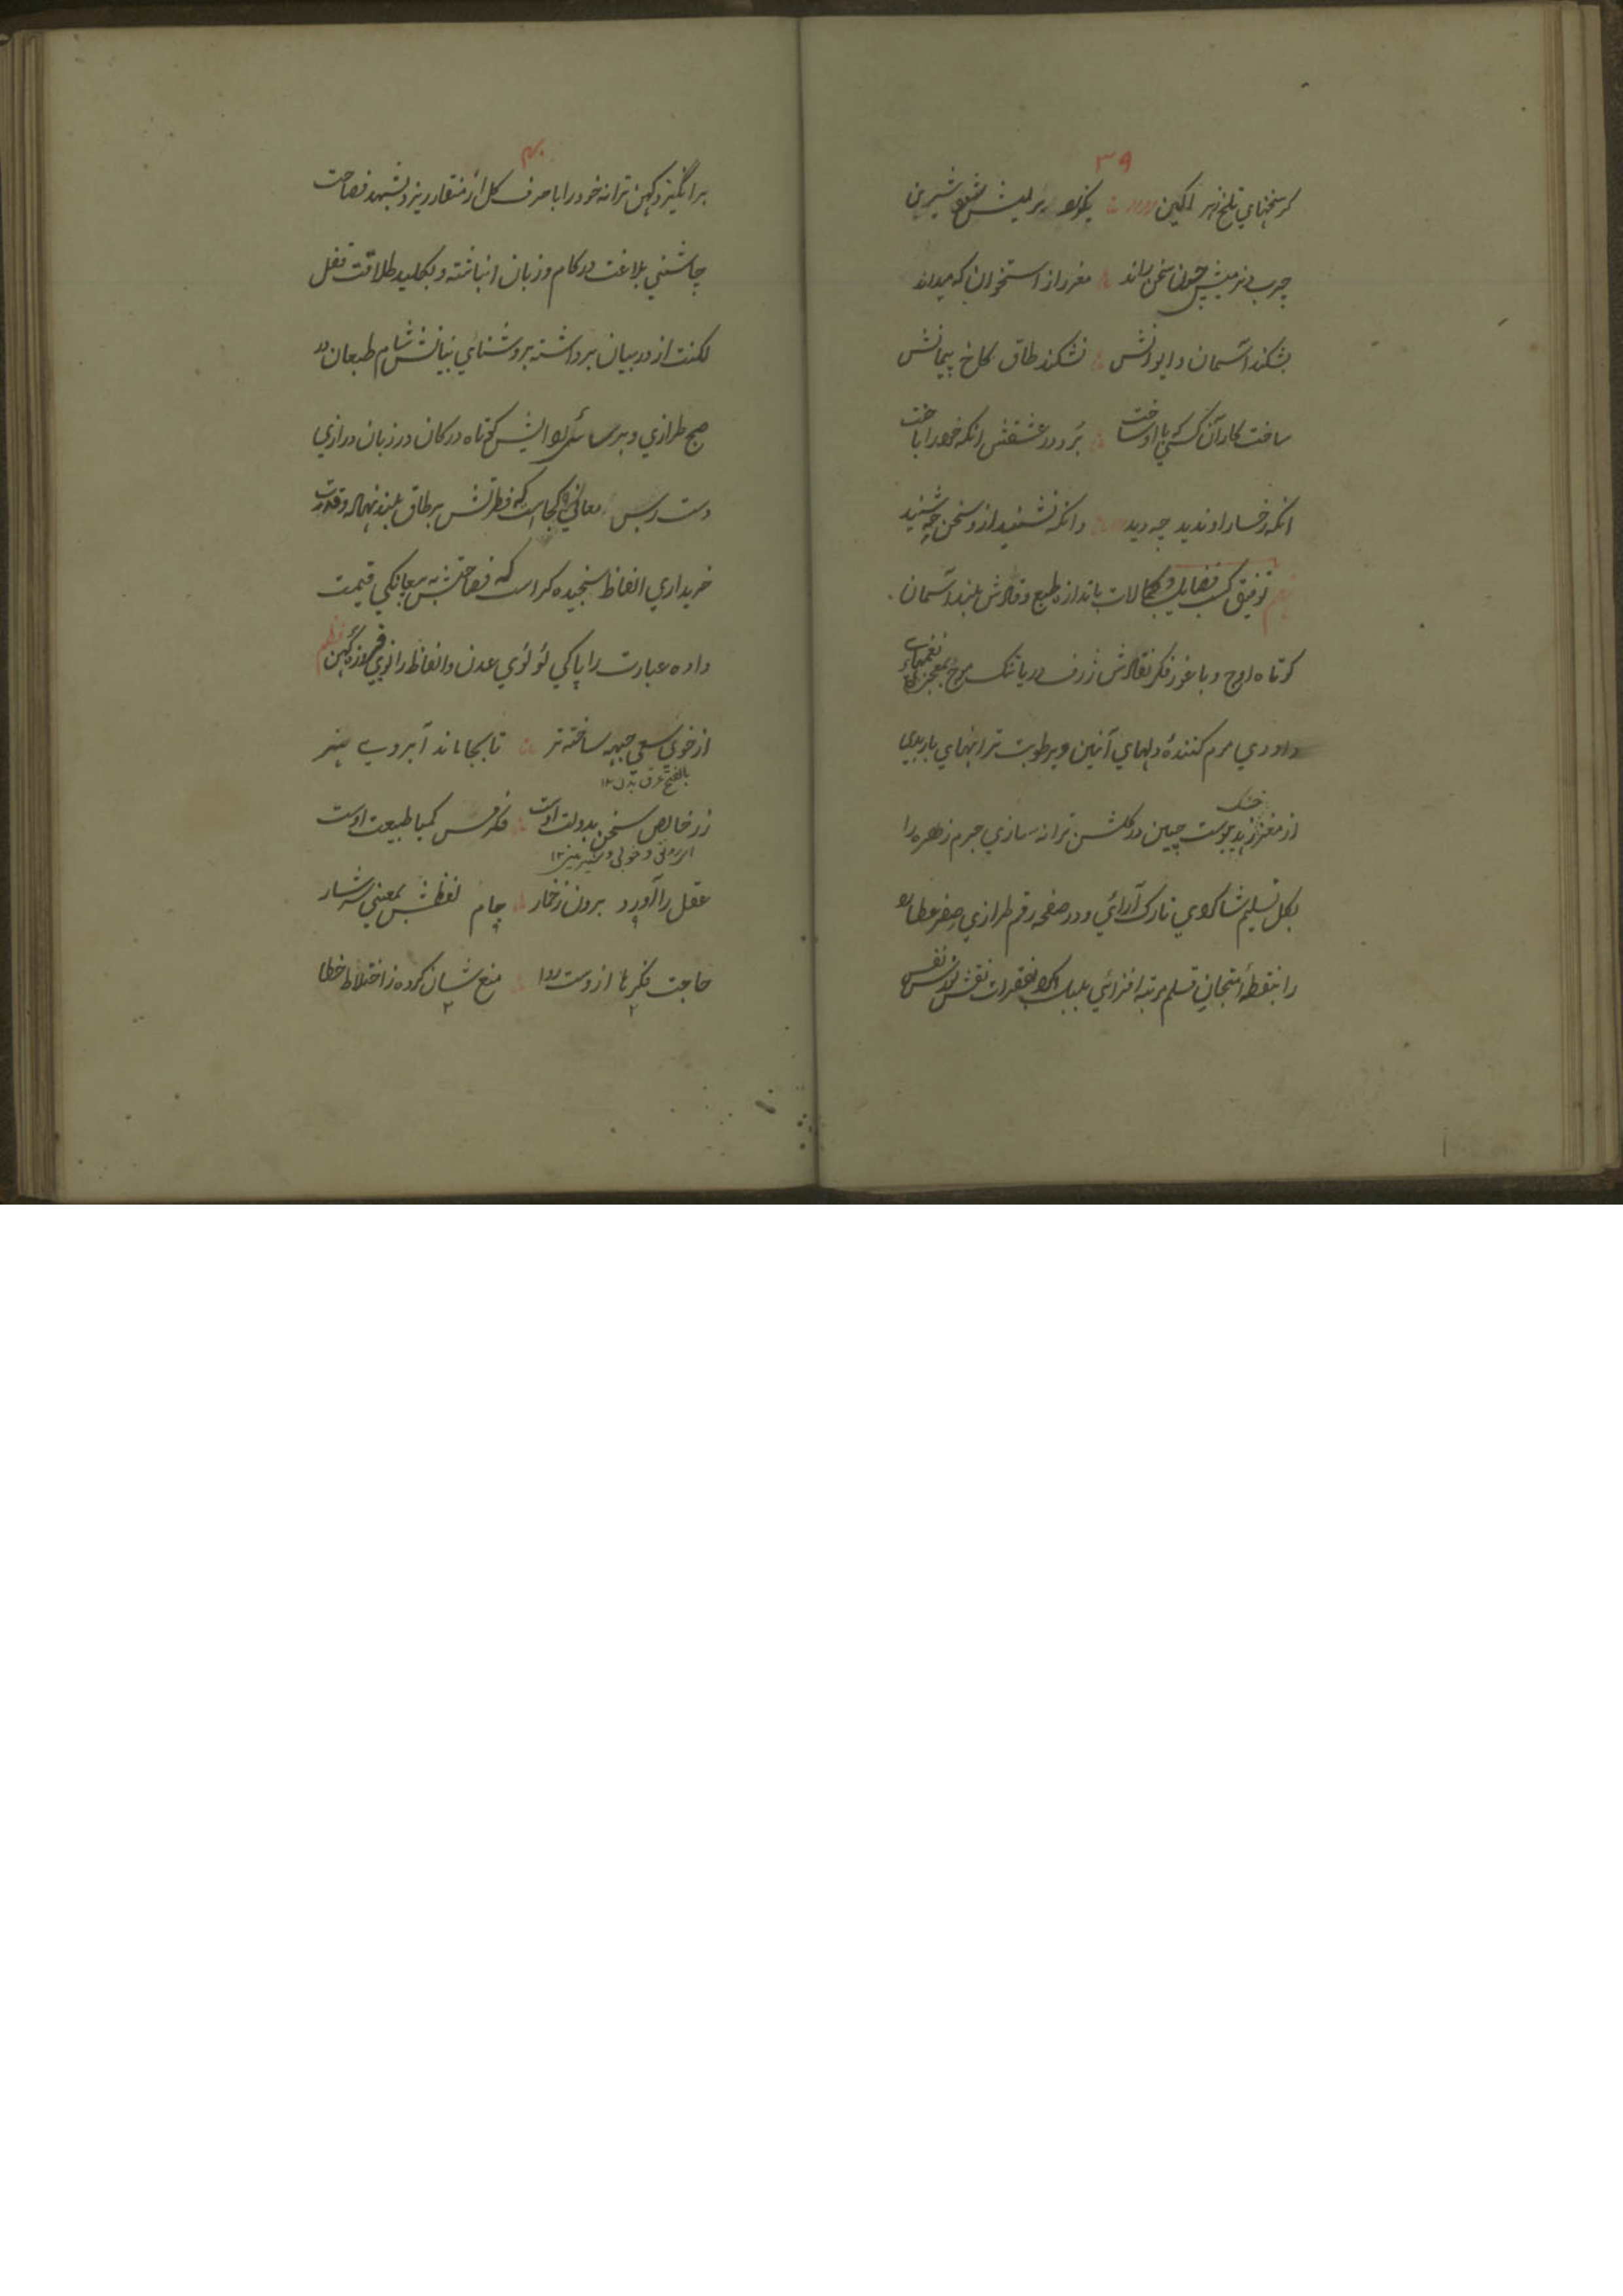 ۳۹
کر سخنهای تلخ زهر اکین بگذرد بر لبش شود شیرین
چرب و نرمیش چون سخن راند مغز را از استخوان که میداند
بشکند آسمان و ایوانش نشکند طاق کاخ پیمانش
ساخت کار آن کسی که با او ساخت برد در عشقش انکه خود را باخت
انکه رخسار او ندید چه دید وانکه نشنید از و سخن چه شنید
توفیق کسب فضایل و کمالات باندازه طبع وقادش بلند آسمان
کوتاه اوج و با غور فکر نقادش ژرف دریا تنک موج بمعجز نغمهای
داودی نرم کنندهٔ دلهای آهنین و برطوبت ترانهای باربدی
از مغز زهد خشک یبوست چین در گلشن ترانه سازی جرم زهره را
بکل تسلیم شاکردی تارک آرائی و در صفحه رقم طرازی صفر عطارد
را بنقطهٔ امتحان قلم مرتبه افزائی بلبل اگر بفقرات نقش نفس
۴۰
برانگیزد کهن ترانه خود را با صرف کل از منقار ریزد بشهد فصاحت
چاشنی بلاغت در کام و زبان انباشته و بکلید طلاقت قفل
لکنت از در بیان برداشته بروشنای بیانش شام طبعان در
صبح طرازی و برسائی ادایش کوتاه درکان در زبان درازی
دست رس معانی کجاست که فطرتش برطاق بلند نهاده و قدرت
خریداری الفاظ سنجیده کراست که فصاحتش به سبحانکی قیمت
داده عبارت را پاکی لؤلؤی عدن و الفاظ را نوی فیروزه کهن نظم
از خوی سعی جبهه ساخته تر تا بجا ماند آبروی هنر
بالفتح عرق بدن ۱۲
زر خالص سخن بدولت اوست فکر مس کیمیا طبیعت اوست
ای رونق و خوبی و شیرینی ۱۲
عقل را آورد برون ز خمار جام لفظش بمعنی سرشار
حاجت فکرها ازوست روا منع شان کرده ز اختلاط خطا